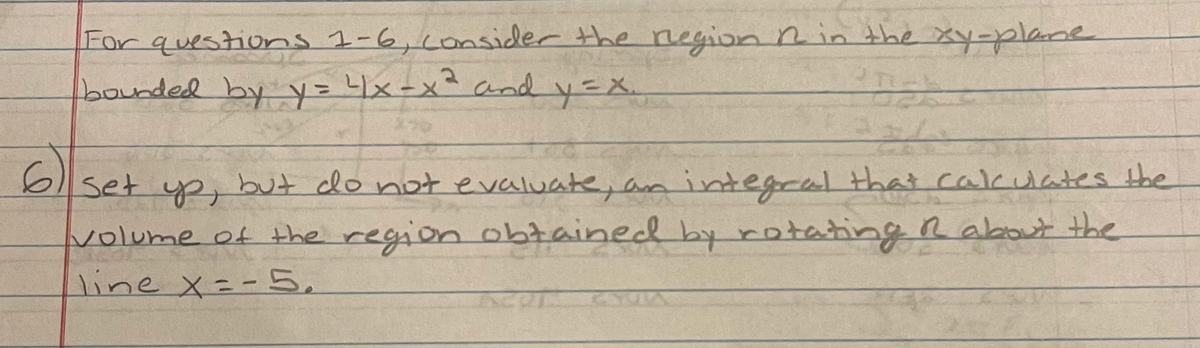 For questions 1-6, consider the region R in the xy-plane
bounded by y = 4x - x² and y = x.
6) set up, but do not evaluate, an integral that calculates the
volume of the region obtained by rotating R about the
line x = -5.